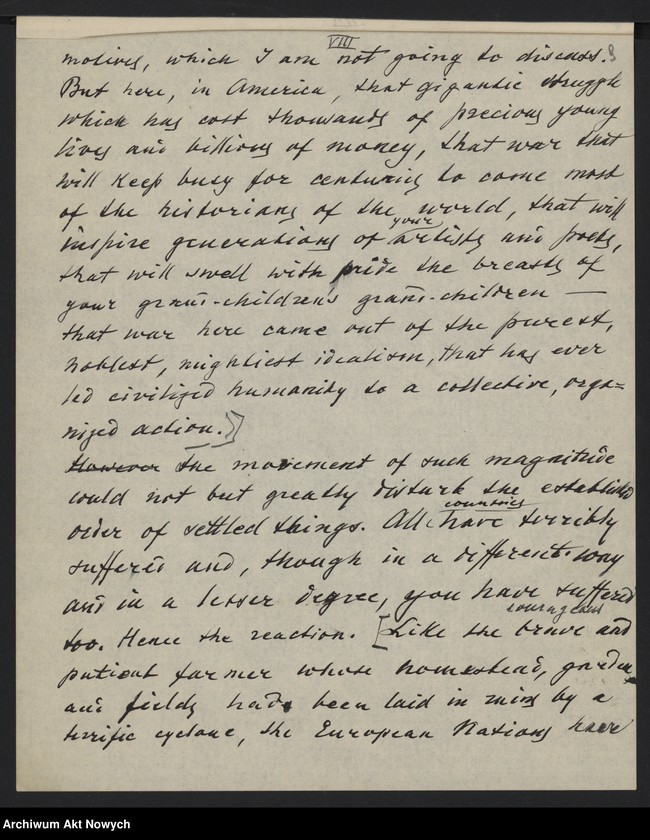 VIII
9
motives, which I am not going to discuss.
But here, in America, that gigantic struggle
which has cost thousands of precious young
lives and billions of money, that war that
will keep busy for centuries to come most
of the historians of the world, that will
your
inspire generations of artists and poets,
that will swell with pride the breasts of
your grand-children's grand-children —
that war here came out of the purest,
noblest, mightiest idealism, that has ever
led civilized humanity to a collective, orga=
nized action.]
However The movement of such magnitude
could not but greatly disturb the established
countries
order of settled things. All have terribly
suffered and, though in a different way
and in a lesser degree, you have suffered
courageous
too. Hence the reaction. [Like the brave and
patient farmer whose homestead, garden
and fields had been laid in ruins by a
terrific cyclone, the European Nations have
Archiwum Akt Nowych